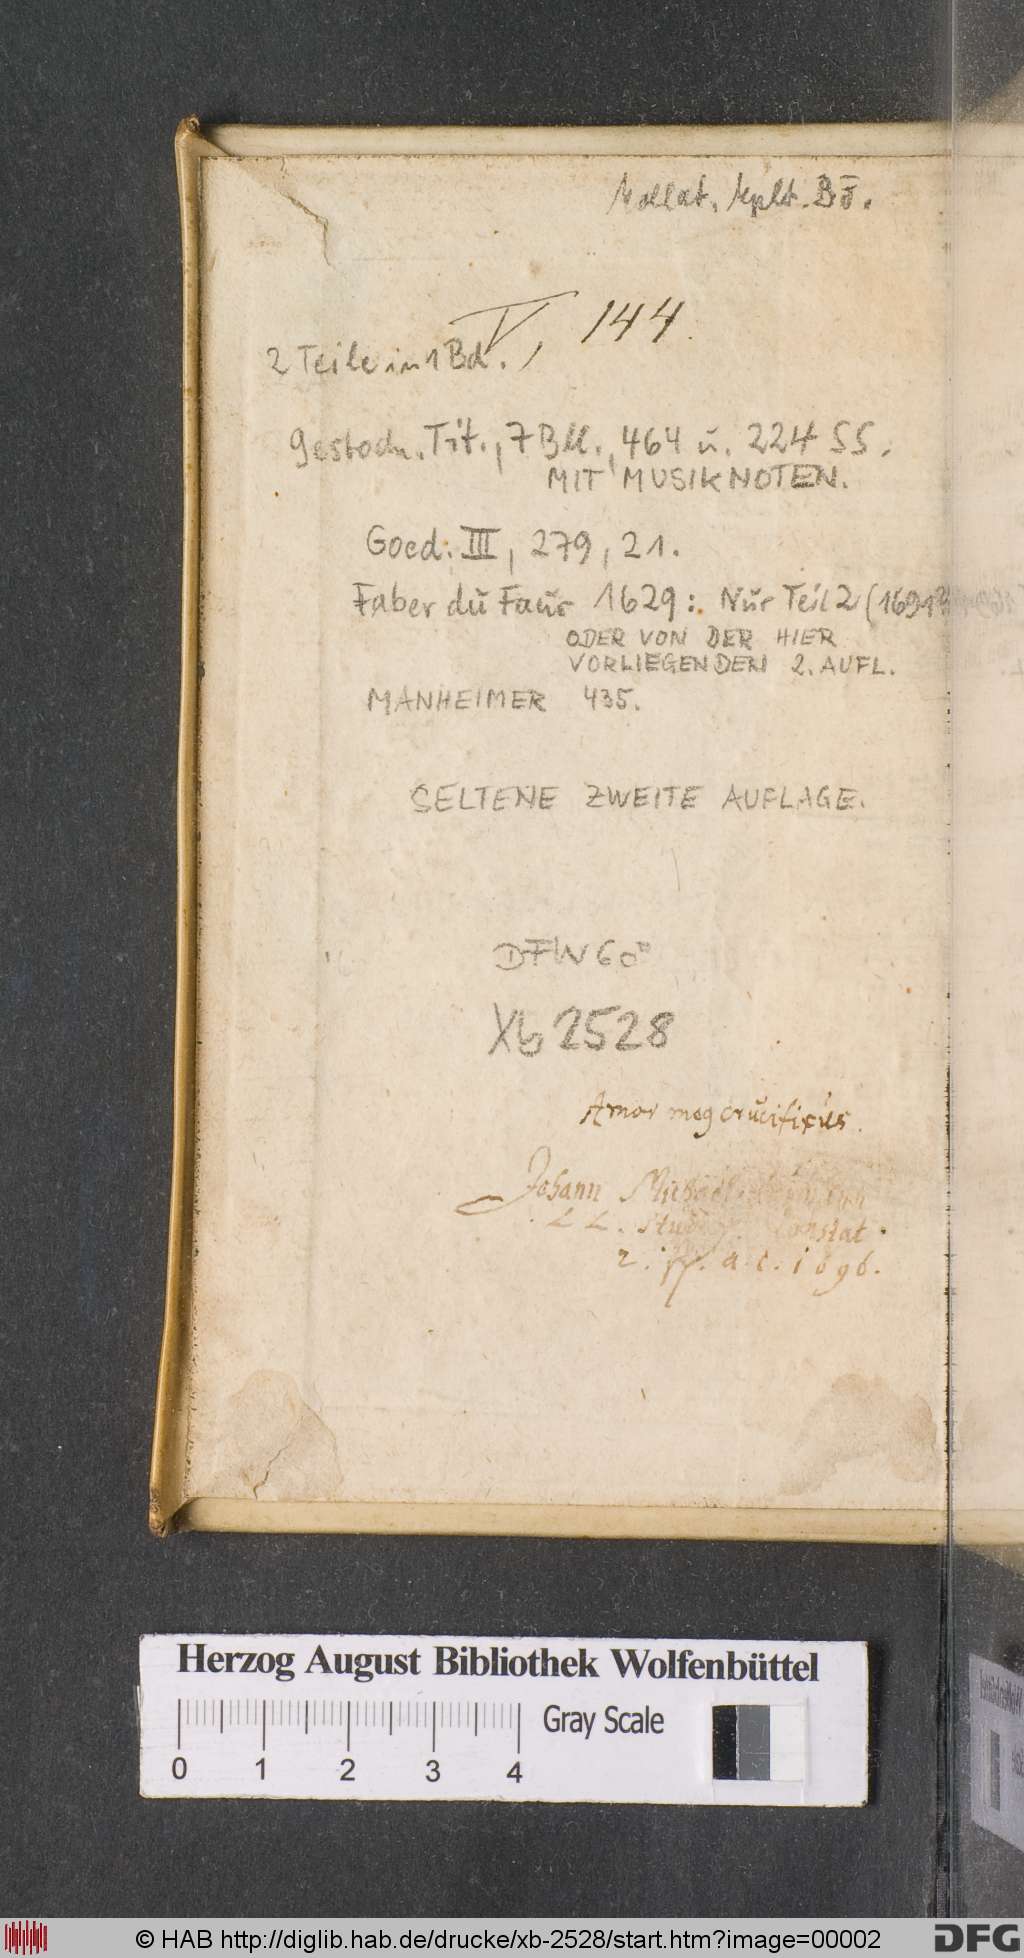 Kollat. kplt. Bö.
V, 144.
2 Teile in 1 Bd.
gestoch. Tit., 7 Bll., 464 u. 224 SS.
MIT MUSIKNOTEN.
Goed. III, 279, 21.
Faber du Faur 1629: Nur Teil 2 (1691
ODER VON DER HIER
VORLIEGENDEN 2. AUFL.
MANHEIMER 435.
SELTENE ZWEITE AUFLAGE.
DFW 60
Xb 2528
Amor meg crucifixus.
Johann Michael
L L. Stud.
2. a. c. 1696.
Herzog August Bibliothek Wolfenbüttel
Gray Scale
0 1 2 3 4
© HAB http://diglib.hab.de/drucke/xb-2528/start.htm?image=00002
DFG